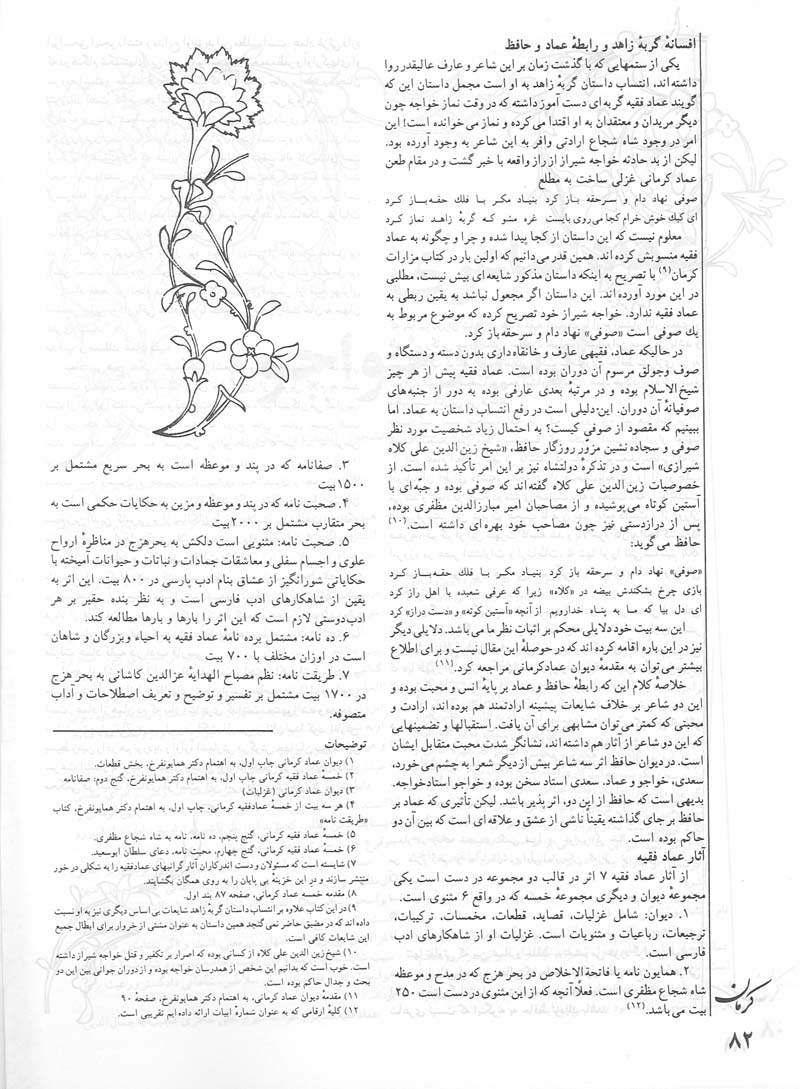 افسانهٔ گربهٔ زاهد و رابطهٔ عماد و حافظ
یکی از ستمهایی که با گذشت زمان بر این شاعر و عارف عالیقدر روا
داشته‌اند، انتساب داستان گربهٔ زاهد به او است مجمل داستان این که
گویند عماد فقیه گربه‌ای دست آموز داشته که در وقت نماز خواجه چون
دیگر مریدان و معتقدان به او اقتدا می‌کرده و نماز می‌خوانده است! این
امر در وجود شاه شجاع ارادتی وافر به این شاعر به وجود آورده بود.
لیکن از بد حادثه خواجه شیراز از راز واقعه با خبر گشت و در مقام طعن
عماد کرمانی غزلی ساخت به مطلع
صوفی نهاد دام و سرحقه باز کرد بنیاد مکر با فلك حقه‌باز کرد
ای کبك خوش خرام کجا می‌روی بایست غره مشو که گربهٔ زاهد نماز کرد
معلوم نیست که این داستان از کجا پیدا شده و چرا و چگونه به عماد
فقیه منسوبش کرده‌اند. همین قدر می‌دانیم که اولین بار در کتاب مزارات
کرمان(۹) با تصریح به اینکه داستان مذکور شایعه‌ای بیش نیست، مطلبی
در این مورد آورده‌اند. این داستان اگر مجعول نباشد به یقین ربطی به
عماد فقیه ندارد. خواجه شیراز خود تصریح کرده که موضوع مربوط به
یك صوفی است «صوفی» نهاد دام و سرحقه باز کرد.
در حالیکه عماد، فقیهی عارف و خانقاه‌داری بدون دسته و دستگاه و
صوف وجولق مرسوم آن دوران بوده است. عماد فقیه پیش از هر چیز
شیخ‌الاسلام بوده و در مرتبهٔ بعدی عارفی بوده به دور از جنبه‌های
صوفیانهٔ آن دوران. این دلیلی است در رفع انتساب داستان به عماد. اما
ببینیم که مقصود از صوفی کیست؟ به احتمال زیاد شخصیت مورد نظر
صوفی و سجاده نشین مزوّر روزگار حافظ، «شیخ زین‌الدین علی کلاه
شیرازی» است و در تذکرهٔ دولتشاه نیز بر این امر تأکید شده است. از
خصوصیات زین‌الدین علی کلاه گفته‌اند که صوفی بوده و جبّه‌ای با
آستین کوتاه می‌پوشیده و از مصاحبان امیر مبارزالدین مظفری بوده،
پس از درازدستی نیز چون مصاحب خود بهره‌ای داشته است.(۱۰)
حافظ می‌گوید:
«صوفی» نهاد دام و سرحقه باز کرد بنیاد مکر با فلك حقه‌باز کرد
بازی چرخ بشکندش بیضه در «کلاه» زیرا که عرفی شعبده با اهل راز کرد
ای دل بیا که ما به پناه خدارویم از آنچه «آستین کوته» و «دست دراز» کرد
این سه بیت خود دلایلی محکم بر اثبات نظر ما می‌باشد. دلایلی دیگر
نیز در این باره اقامه کرده‌اند که در حوصلهٔ این مقال نیست و برای اطلاع
بیشتر می‌توان به مقدمهٔ دیوان عمادکرمانی مراجعه کرد.(۱۱)
خلاصهٔ کلام این که رابطهٔ حافظ و عماد بر پایهٔ انس و محبت بوده و
این دو شاعر بر خلاف شایعات پیشینه ارادتمند هم بوده‌اند، ارادت و
محبتی که کمتر می‌توان مشابهی برای آن یافت. استقبالها و تضمینهایی
که این دو شاعر از آثار هم داشته‌اند، نشانگر شدت محبت متقابل ایشان
است. در دیوان حافظ اثر سه شاعر بیش از دیگر شعرا به چشم می‌خورد،
سعدی، خواجو و عماد. سعدی استاد سخن بوده و خواجو استادخواجه.
بدیهی است که حافظ از این دو، اثر پذیر باشد. لیکن تأثیری که عماد بر
حافظ بر جای گذاشته یقیناً ناشی از عشق و علاقه‌ای است که بین آن دو
حاکم بوده است.
آثار عماد فقیه
از آثار عماد فقیه ۷ اثر در قالب دو مجموعه در دست است یکی
مجموعهٔ دیوان و دیگری مجموعهٔ خمسه که در واقع ۶ مثنوی است.
۱. دیوان: شامل غزلیات، قصاید، قطعات، مخمسات، ترکیبات،
ترجیعات، رباعیات و مثنویات است. غزلیات او از شاهکارهای ادب
فارسی است.
۲. همایون نامه یا فاتحةالاخلاص در بحر هزج که در مدح و موعظه
شاه شجاع مظفری است. فعلاً آنچه که از این مثنوی در دست است ۲۵۰
بیت می‌باشد.(۱۲)
۳. صفانامه که در پند و موعظه است به بحر سریع مشتمل بر
۱۵۰۰ بیت
۴. صحبت نامه که در پند و موعظه و مزین به حکایات حکمی است به
بحر متقارب مشتمل بر ۲۰۰۰ بیت
۵. صحبت نامه: مثنویی است دلکش به بحرهزج در مناظرهٔ ارواح
علوی و اجسام سفلی و معاشقات جمادات و نباتات و حیوانات آمیخته با
حکایاتی شورانگیز از عشاق بنام ادب پارسی در ۸۰۰ بیت. این اثر به
یقین از شاهکارهای ادب فارسی است و به نظر بنده حقیر بر هر
ادب‌دوستی لازم است که این اثر را بارها و بارها مطالعه کند.
۶. ده نامه: مشتمل برده نامهٔ عماد فقیه به احیاء وبزرگان و شاهان
است در اوزان مختلف با ۷۰۰ بیت
۷. طریقت نامه: نظم مصباح الهدایهٔ عزالدین کاشانی به بحر هزج
در ۱۷۰۰ بیت مشتمل بر تفسیر و توضیح و تعریف اصطلاحات و آداب
متصوفه.
توضیحات
۱) دیوان عماد کرمانی چاپ اول، به اهتمام دکتر همایونفرخ، بخش قطعات.
۲) خمسهٔ عماد فقیه کرمانی چاپ اول، به اهتمام دکتر همایونفرخ، گنج دوم: صفانامه
۳) دیوان عماد کرمانی (غزلیات)
۴) هر سه بیت از خمسهٔ عمادفقیه کرمانی، چاپ اول، به اهتمام دکتر همایونفرخ، کتاب
«طریقت نامه»
۵) خمسهٔ عماد فقیه کرمانی، گنج پنجم، ده نامه، نامه به شاه شجاع مظفری.
۶) خمسهٔ عماد فقیه کرمانی، گنج چهارم، محبت نامه، دعای سلطان ابوسعید.
۷) شایسته است که مسئولان و دست اندرکاران آثار گرانبهای عمادفقیه را به شکلی در خور
منتشر سازند و در این خزینهٔ بی پایان را به روی همگان بگشایند.
۸) مقدمه خمسه عماد کرمانی، صفحه ۸۷ بند اول.
۹) در این کتاب علاوه بر انتساب داستان گربهٔ زاهد شایعات بی‌اساس دیگری نیز به او نسبت
داده‌اند که در مضیق حاضر نمی‌گنجد همین داستان به عنوان مشتی از خروار برای ابطال جمیع
این شایعات کافی است.
۱۰) شیخ زین الدین علی کلاه از کسانی بوده که اصرار بر تکفیر و قتل خواجه شیراز داشته
است. خوب است که بدانیم این شخص از همدرسان خواجه بوده و ازدوران جوانی بین این دو
بحث و جدال حاکم بوده است.
۱۱) مقدمهٔ دیوان عماد کرمانی، به اهتمام دکتر همایونفرخ، صفحهٔ ۹۰
۱۲) کلیهٔ ارقامی که به عنوان شمارهٔ ابیات ارائه داده ایم تقریبی است.
کرمان
۸۲